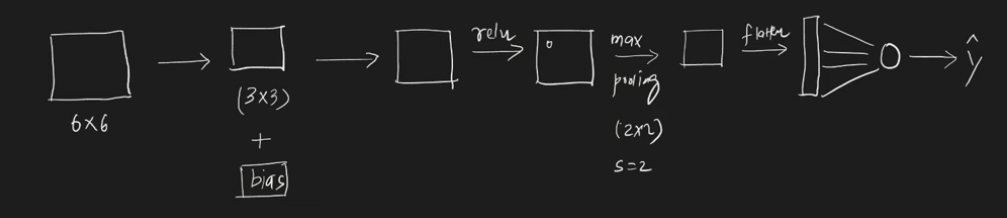 6×6
(3×3)
+
bias
relu
max
pooling
(2×2)
s=2
flatten
ŷ